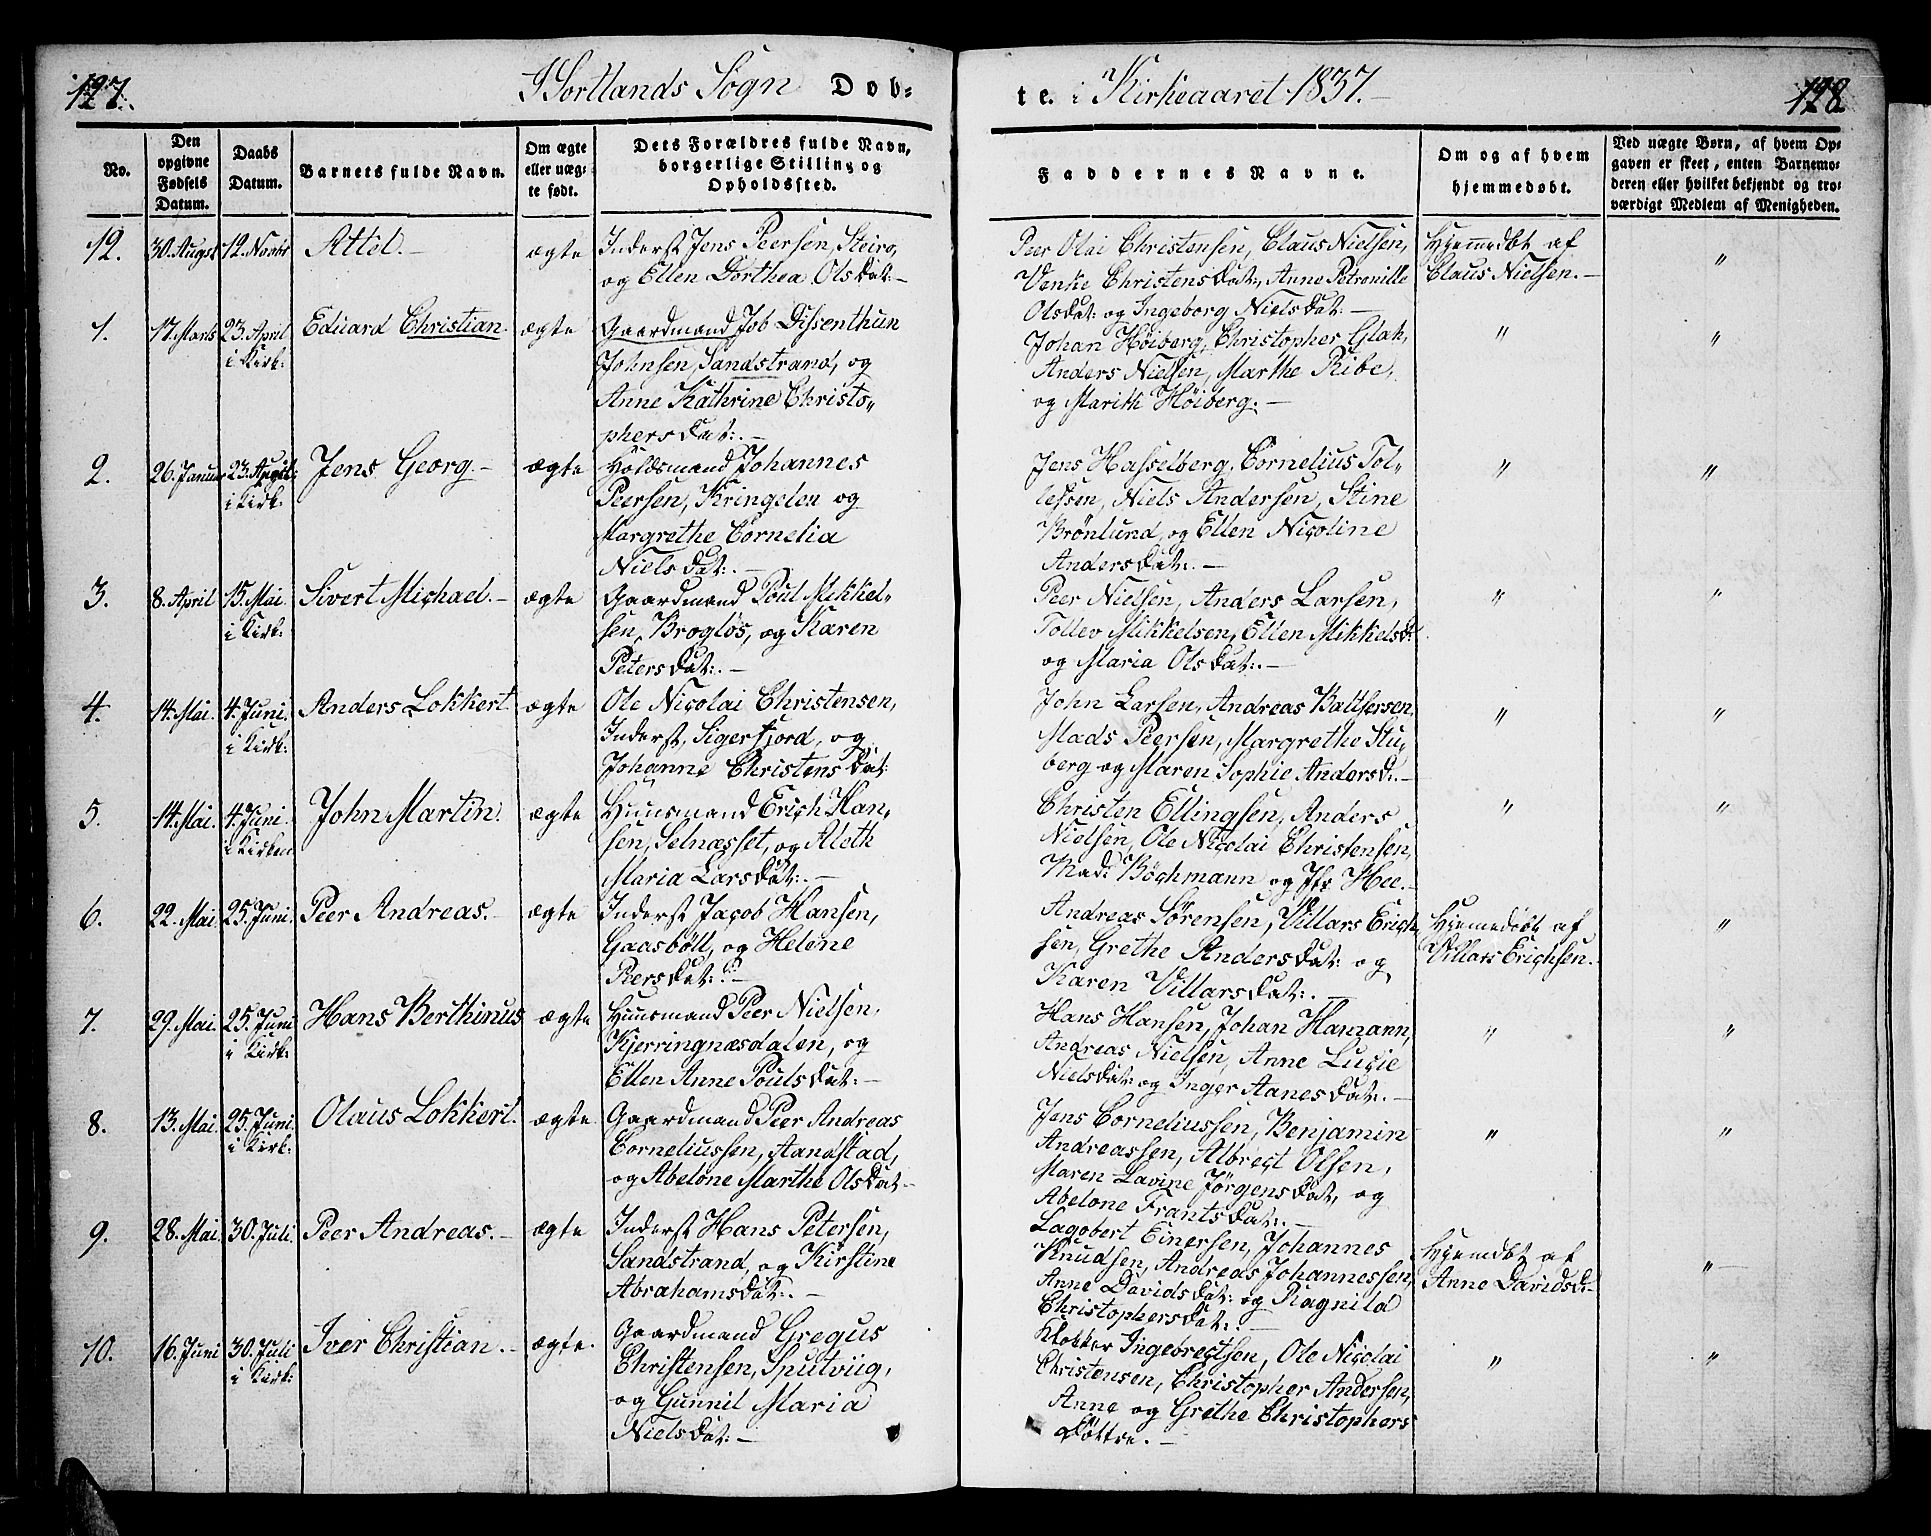 127. I Sortlands Sogn Dob-
No.
Den opgivne Fødsels Datum.
Daabs Datum.
Barnets fulde Navn.
Om ægte eller uæg- te født.
Dets Forældres fulde Navn, borgerlige Stilling og Opholdssted.
12. 30. Augst 12. Novbr Attel.- ægte Inderst Jens Peersen, Steiro,
og Ellen Dorthea Olsdat:-
1. 17. Marts 23. April Eduard Christian. ægte Gaardmand Job Dissenthun
i Kirk: Johnsen, Sandstrand, og
Anne Kathrine Christo-
phersdat:.-
2. 26. Januar 23. April: Jens Georg.- ægte Holdsmand Johannes
i Kirk: Peersen, Kringelen og
Margrethe Cornelia
Nielsdat:.-
3. 8. April 15. Mai. Sivert Michael.- ægte Gaardmand Poul Mikkel-
i Kirk: sen, Brogløs, og Karen
Petersdat:.-
4. 14. Mai. 4. Juni. Anders Lokkert. ægte Ole Nicolai Christensen,
i Kirk: Inderst, Sigerfjord, og
Johanne Christensdat:
5. 14. Mai. 4. Juni. John Martin. ægte Huusmand Erich Han-
i Kirken sen, Selnæsset, og Aleth
Maria Larsdat:.-
6. 22. Mai. 25. Juni. Peer Andreas.- ægte Inderst Jacob Hansen,
Gaasbøll, og Helene
Peersdat:.-
7. 29. Mai. 25. Juni Hans Berthinus ægte Huusmand Peer Nielsen,
i Kirk: Kjerringnæsdalen, og
Ellen Anne Poulsdat:-
8. 13. Mai. 25. Juni. Olaus Lokkert. ægte. Gaardmand Peer Andreas
i Kirk: Corneliussen, Aandstad,
og Abelone Marthe Olsdat:-
9. 28. Mai. 30. Juli. Peer Andreas.- ægte Inderst Hans Petersen,
Sandstrand, og Kirstine
Abrahamsdat:.-
10. 16. Juni 30. Juli Iver Christian.- ægte. Gaardmand Gregus
i Kirk: Christensen, Sputviig,
og Gunnil Maria
Nielsdat:-
te. i Kirkeaaret 1837.- 128
Faddernes Navne.
Om og af hvem hjemmedøbt.
Ved uægte Børn, af hvem Op-
gaven er skeet, enten Barnemo-
deren eller hvilket bekjendt og tro-
værdigt Medlem af Menigheden.
Peer Olai Christensen, Claus Nielsen, Hjemmedbt af "
Venke Christensdat:, Anne Petronille Claus Nielsen.-
Olsdat: og Ingeborg Nielsdat:-
Johan Høiberg, Christopher Glak, " "
Anders Nielsen, Marthe Ribe,
og Marith Høiberg.-
Jens Hasselberg, Cornelius Tol- " "
lefsen, Niels Andersen, Stine
Brønlund, og Ellen Nicoline
Andersdat:.-
Peer Nielsen, Anders Larsen, " "
Tollev Mikkelsen, Ellen Mikkelsd:
og Maria Olsdat:.-
John Larsen, Andreas Baltsersen, " "
Mads Peersen, Margrethe Stu-
berg og Maren Sophie Andersd:-
Christen Ellingsen, Anders " "
Nielsen, Ole Nicolai Christensen,
Mad: Bøchmann og Jfr Hee.-
Andreas Sørensen, Villars Erich- Hjemedøbt af "
sen, Grethe Andersdat: og Villars Erichsen.
Karen Villarsdat:.-
Hans Hansen, Johan Hamann, " "
Andreas Nielsen, Anne Lucie
Nielsdat: og Inger Aanesdat:.-
Jens Corneliussen, Benjamin " "
Andreassen, Albrect Olsen,
Maren Lavine Jørgensdat, og
Abelone Frantsdat:.-
Lagobert Einersen, Johannes Hjemdbt af "
Knudsen, Andreas Johannessen, Anne Davidsd:-
Anne Davidsdat: og Ragnild
Christophersdat:.-
Klokker Ingebrectsen, Ole Nicolai " "
Christensen, Christopher Andersen,
Anne og Grethe Christophers
Døttre.-